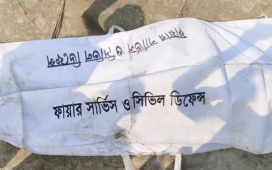 ফায়ার সার্ভিস ও সিভিল ডিফেন্স
ফায়ার সার্ভিস ও সিভিল ডিফেন্স